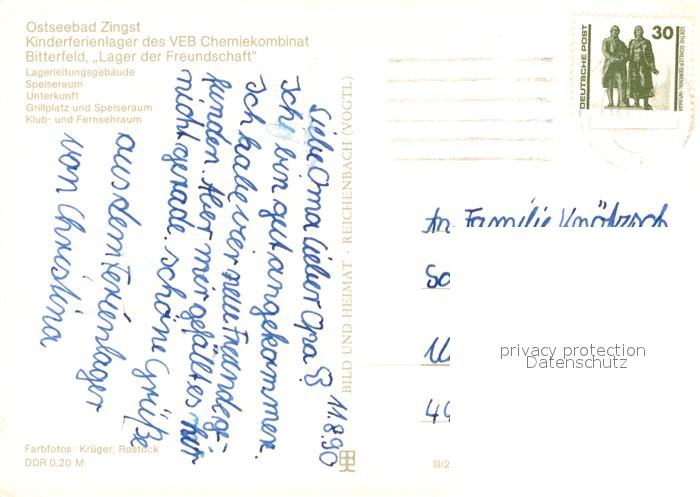 Ostseebad Zingst
Kinderferienlager des VEB Chemiekombinat
Bitterfeld, „Lager der Freundschaft"
Lagerleitungsgebäude
Speiseraum
Unterkunft
Grillplatz und Speiseraum
Klub- und Fernsehraum
11.8.90
Liebe Oma lieber Opa
Ich bin gut angekommen.
Ich habe vier neue Freunde ge-
funden. Aber mir gefällt es hir
nicht gerade. schöne Grüße
aus dem Ferienlager
von Christina
BILD UND HEIMAT · REICHENBACH (VOGTL)
Farbfotos: Krüger, Rostock
DDR 0,20 M
III/2
DEUTSCHE POST
30
GOETHE-SCHILLER-DENKMAL · WEIMAR
An Familie
So
44
privacy protection
Datenschutz